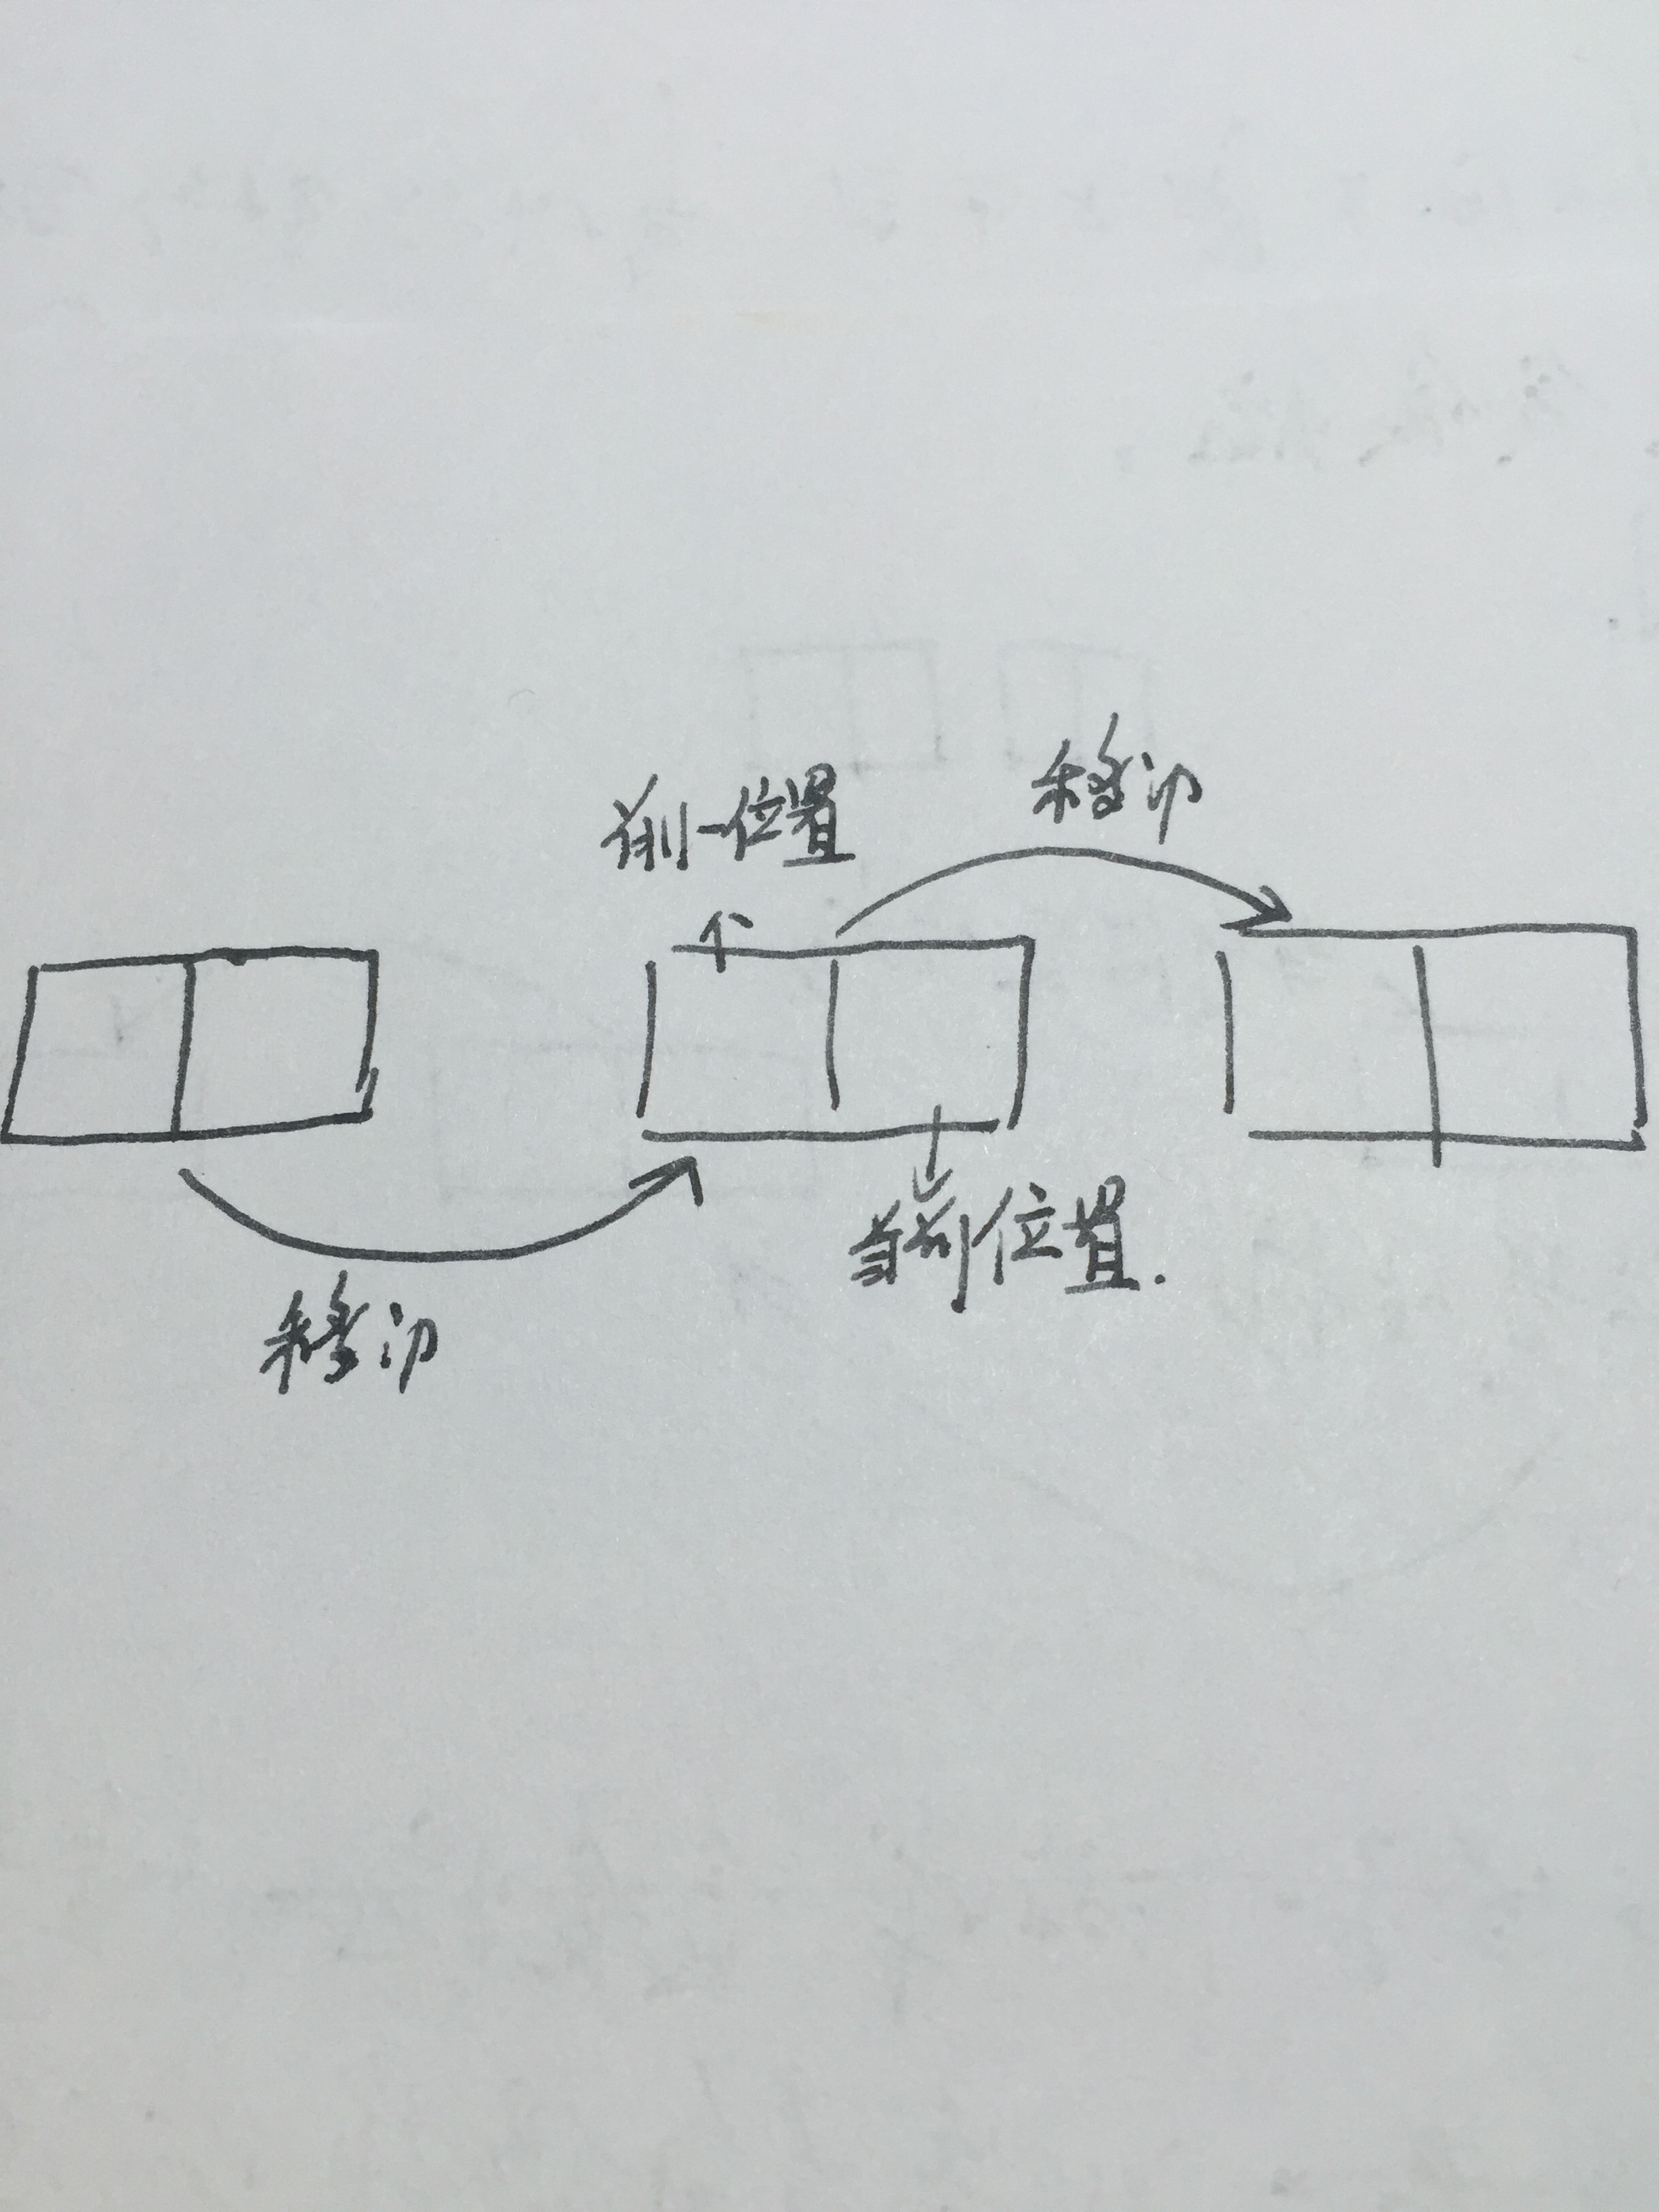 前一位置
移印
当前位置.
移印